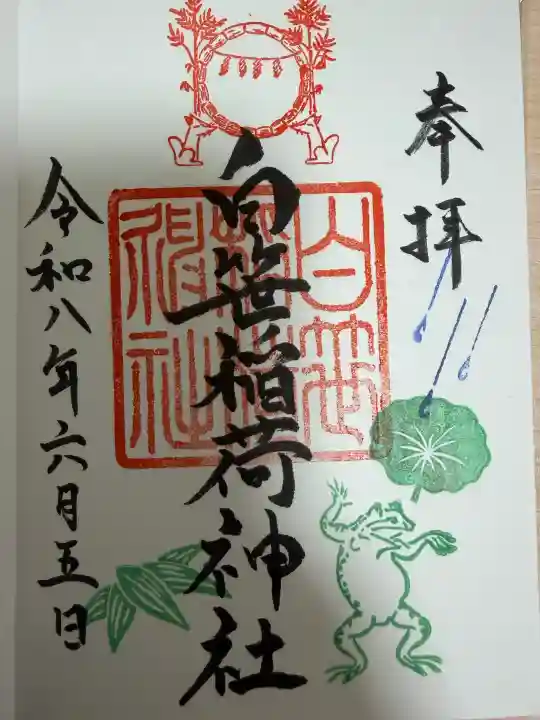 奉拝
白笹稲荷神社
白笹稲荷神社
令和八年六月五日